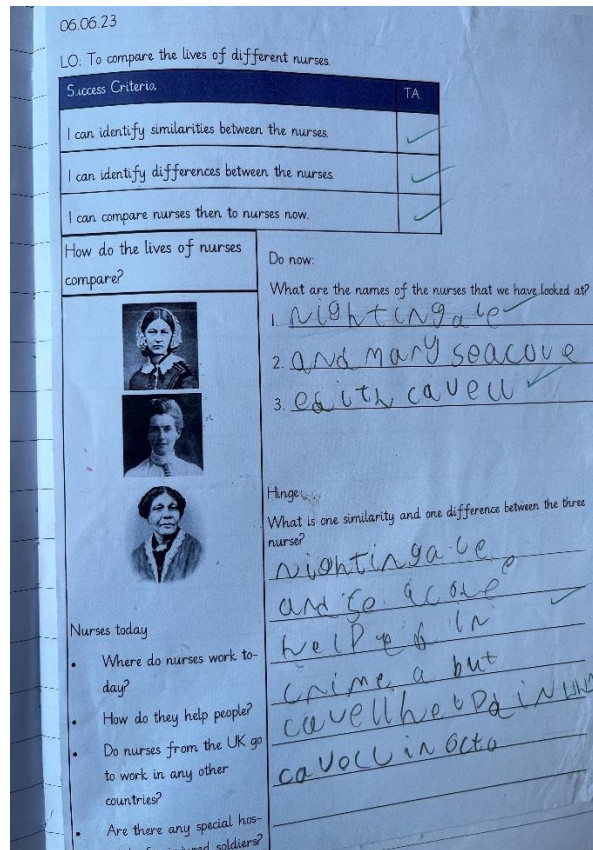 06.06.23
LO: To compare the lives of different nurses.
Success Criteria.
TA
I can identify similarities between the nurses.
I can identify differences between the nurses
I can compare nurses then to nurses now.
How do the lives of nurses
compare?
Nurses today
• Where do nurses work to-
day?
• How do they help people?
• Do nurses from the UK go
to work in any other
countries?
• Are there any special hos-
soldiers?
Do now:
What are the names of the nurses that we have looked at?
1. nightingale
2. and mary seacoue
3. edith cavell
Hinge:
What is one similarity and one difference between the three
nurse?
nightingale
and
helped in
crimea but
cavell helpd in
cavell in